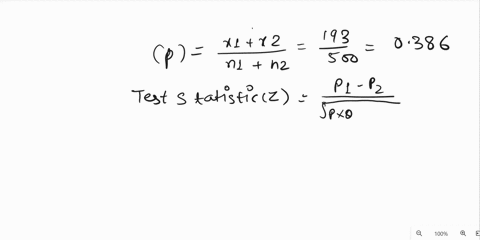 (p) = x1 + x2 / n1 + n2 = 193 / 500 = 0.386
Test Statistic(Z) = P1 - P2 / √P×Q
100%